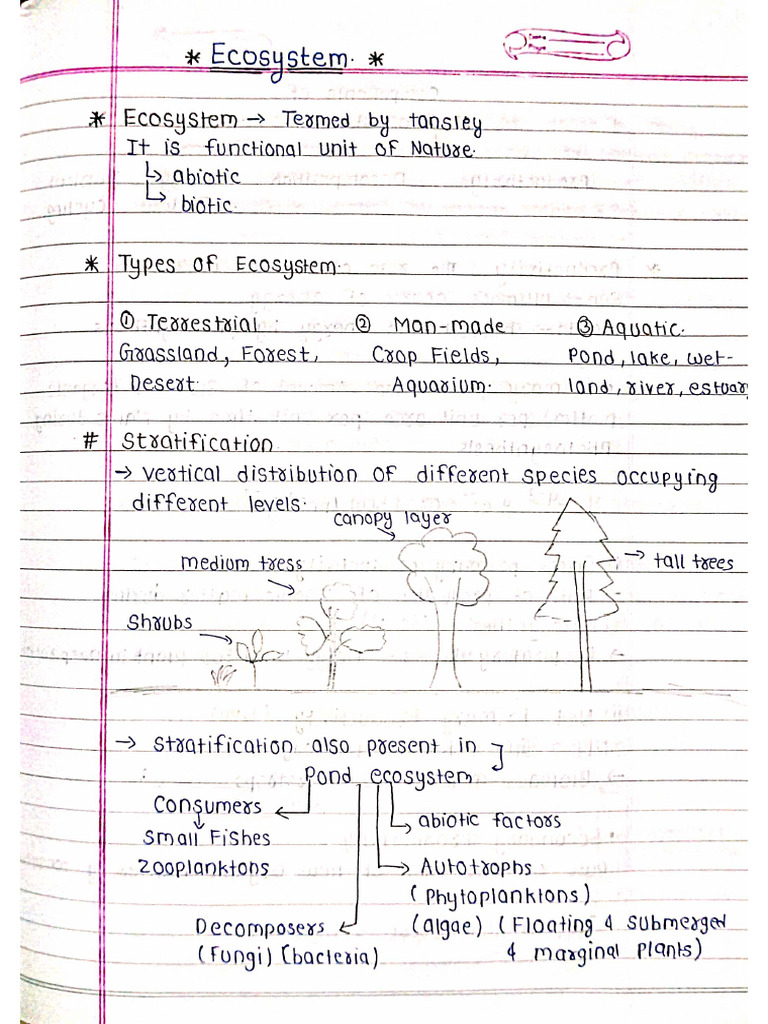 * Ecosystem. *
* Ecosystem → Termed by tansley
It is functional unit of Nature.
↳ abiotic
↳ biotic.
* Types of Ecosystem.
① Terrestrial ② Man-made ③ Aquatic.
Grassland, Forest, Crop Fields, Pond, lake, wet-
Desert Aquarium. land, river, estuary
# Stratification
→ vertical distribution of different species occupying
different levels.
canopy layer
medium tress
→ tall trees
Shrubs
→ Stratification also present in
Pond ecosystem
Consumers
abiotic factors
Small Fishes
Zooplanktons
Autotrophs
(Phytoplanktons)
Decomposers
(algae) (Floating & Submerged
(Fungi) (bacteria)
& marginal Plants)